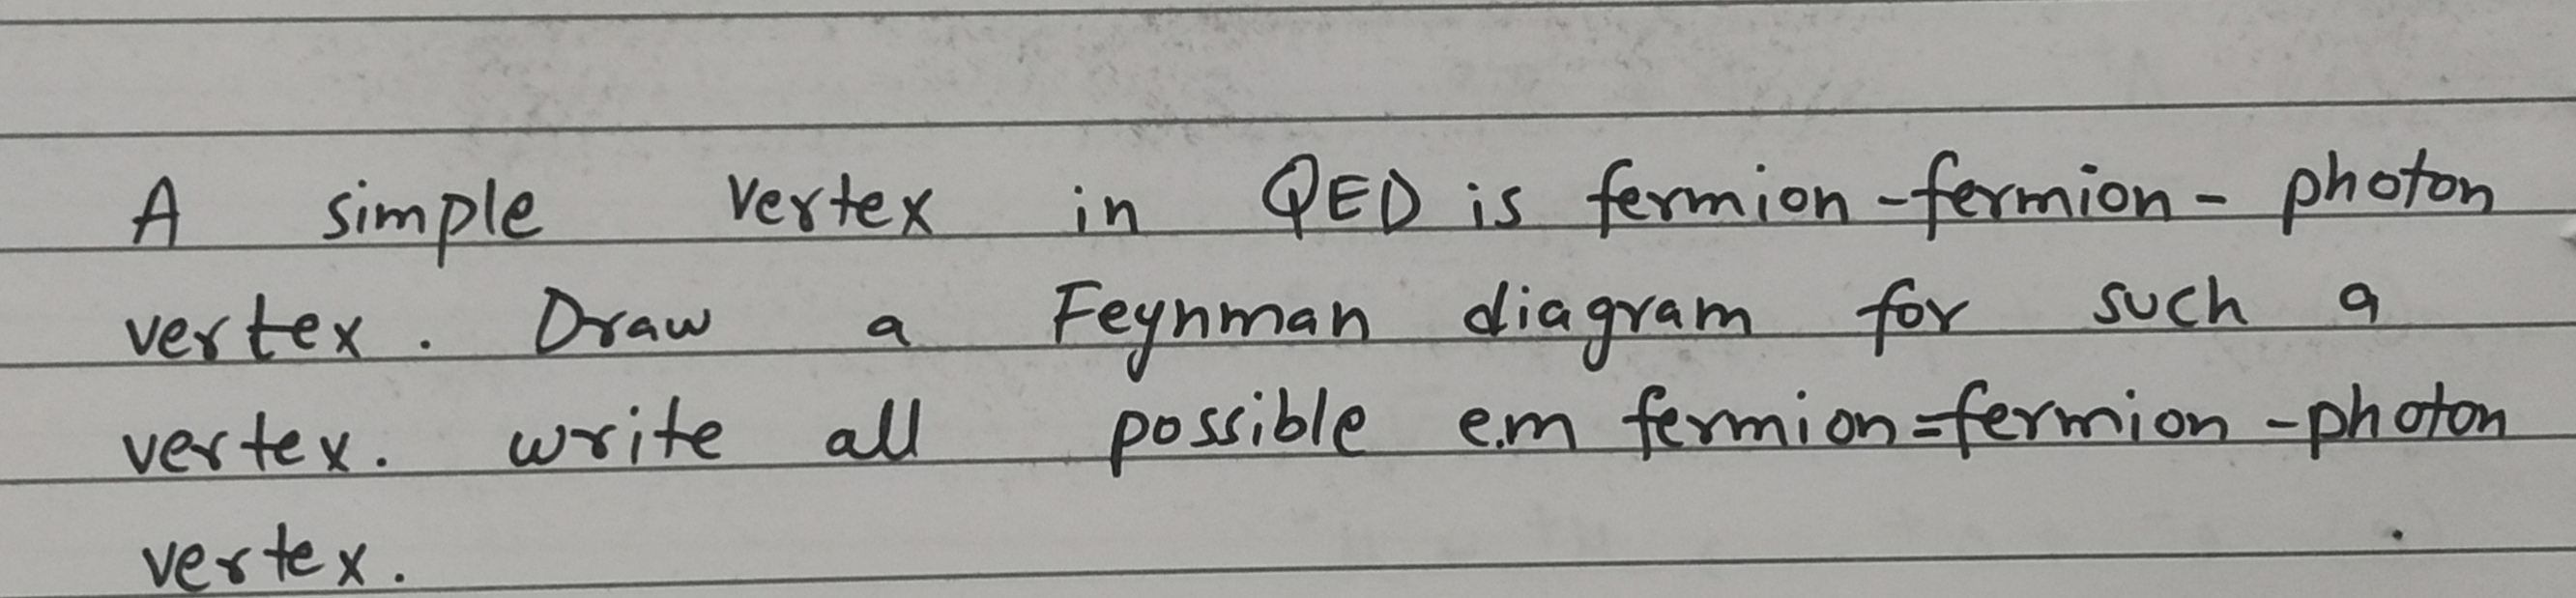 A simple vertex in QED is fermion-fermion- photon
vertex. Draw a Feynman diagram for such a
vertex. write all possible e.m fermion=fermion -photon
vertex.